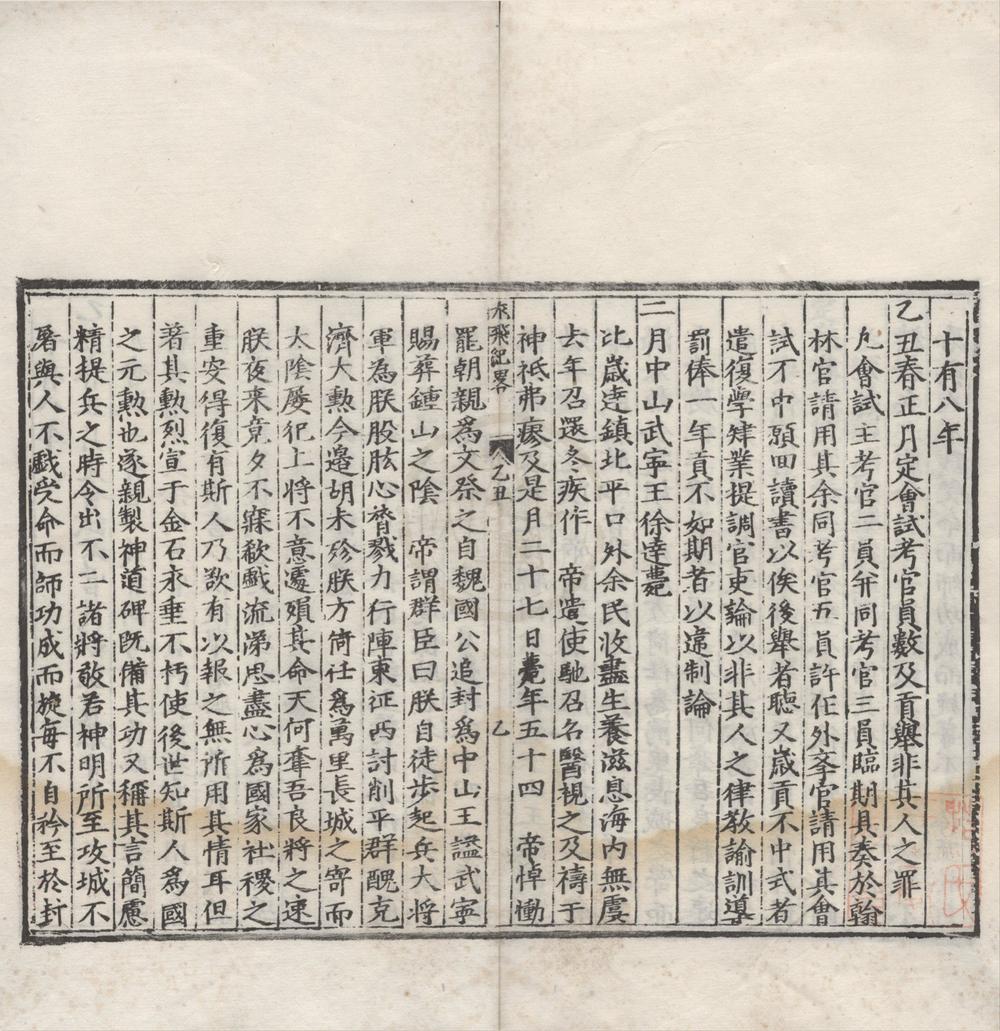 十有八年
乙丑春正月定會試考官員數及貢舉非其人之罪
凡會試主考官二員并同考官三員臨期具奏於翰
林官請用其余同考官五員許在外斈官請用其會
試不中願回讀書以俟後舉者聽又歲貢不中式者
遣復學肄業提調官吏論以非其人之律教諭訓導
罰俸一年貢不如期者以違制論
二月中山武寧王徐達薨
比歲達鎮北平口外余民收盡生養滋息海内無虞
去年召還冬疾作　帝遣使馳召名醫視之及禱于
神祇弗瘳及是月二十七日薨年五十四　帝悼慟
龙飛紀畧　乙丑　乙
罷朝親為文祭之自魏國公追封爲中山王謚武寧
賜葬鍾山之陰　帝謂群臣曰朕自徒步起兵大將
軍為朕股肱心膂戮力行陣東征西討削平群醜克
濟大勳今邊胡未殄朕方倚任爲萬里長城之寄而
太陰屡犯上將不意遽殞其命天何奪吾良將之速
朕夜来竟夕不寐欷歔流涕思盡心爲國家社稷之
重安得復有斯人乃欲有以報之無所用其情耳但
著其勲烈宣于金石永垂不朽使後世知斯人爲國
之元勲也遂親製神道碑既備其功又稱其言簡慮
精提兵之時令出不二諸將敬若神明所至攻城不
屠與人不戲受命而師功成而旋每不自矜至於封